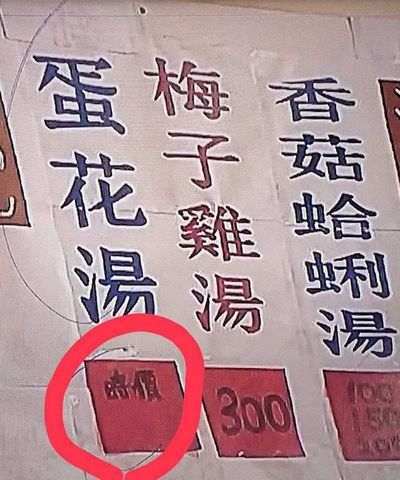 香菇蛤蜊湯
100
150
梅子雞湯
300
蛋花湯
時價